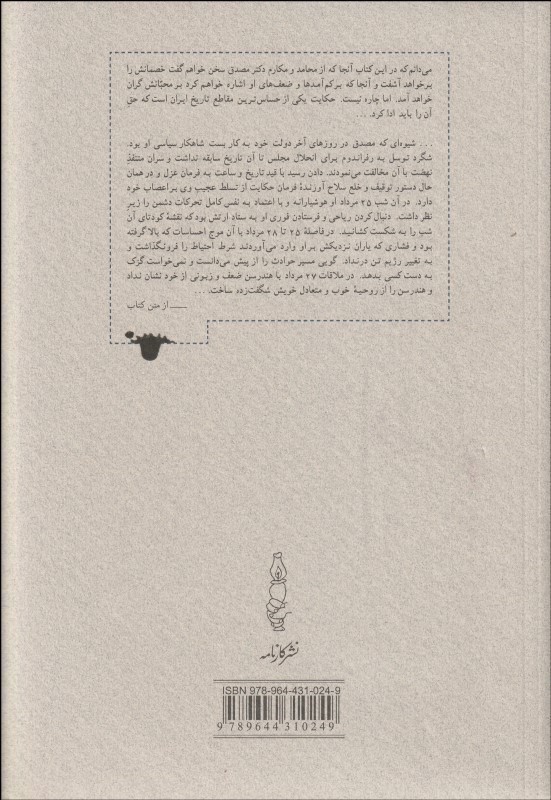 می‌دانم که در این کتاب آنجا که از محامد و مکارم دکتر مصدق سخن خواهم گفت خصمانش را
برخواهد آشفت و آنجا که برکم‌آمدها و ضعف‌های او اشاره خواهم کرد بر محبّانش گران
خواهد آمد. اما چاره نیست. حکایت یکی از حساس‌ترین مقاطع تاریخ ایران است که حقِ
آن را باید ادا کرد. ...
... شیوه‌ای که مصدق در روزهای آخر دولت خود به کار بست شاهکار سیاسی او بود.
شگرد توسل به رفراندوم برای انحلال مجلس تا آن تاریخ سابقه نداشت و سران متنفذِ
نهضت با آن مخالفت می‌نمودند. دادن رسید با قید تاریخ و ساعت به فرمان عزل و در همان
حال دستور توقیف و خلع سلاح آورندهٔ فرمان حکایت از تسلط عجیب وی بر اعصاب خود
دارد. در آن شب ۲۵ مرداد او هوشیارانه و با اعتماد به نفس کامل تحرکات دشمن را زیر
نظر داشت. دنبال کردن ریاحی و فرستادن فوری او به ستاد ارتش بود که نقشهٔ کودتای آن
شب را به شکست کشانید. در فاصلهٔ ۲۵ تا ۲۸ مرداد با آن موج احساسات که بالا گرفته
بود و فشاری که یاران نزدیکش بر او وارد می‌آوردند شرط احتیاط را فرونگذاشت و
به تغییر رژیم تن درنداد. گویی مسیر حوادث را از پیش می‌دانست و نمی‌خواست گزک
به دست کسی بدهد. در ملاقات ۲۷ مرداد با هندرسن ضعف و زبونی از خود نشان نداد
و هندرسن را از روحیهٔ خوب و متعادل خویش شگفت‌زده ساخت. ...
ــــ از متن کتاب
نشر کارنامه
ISBN 978-964-431-024-9
9 789644 310249